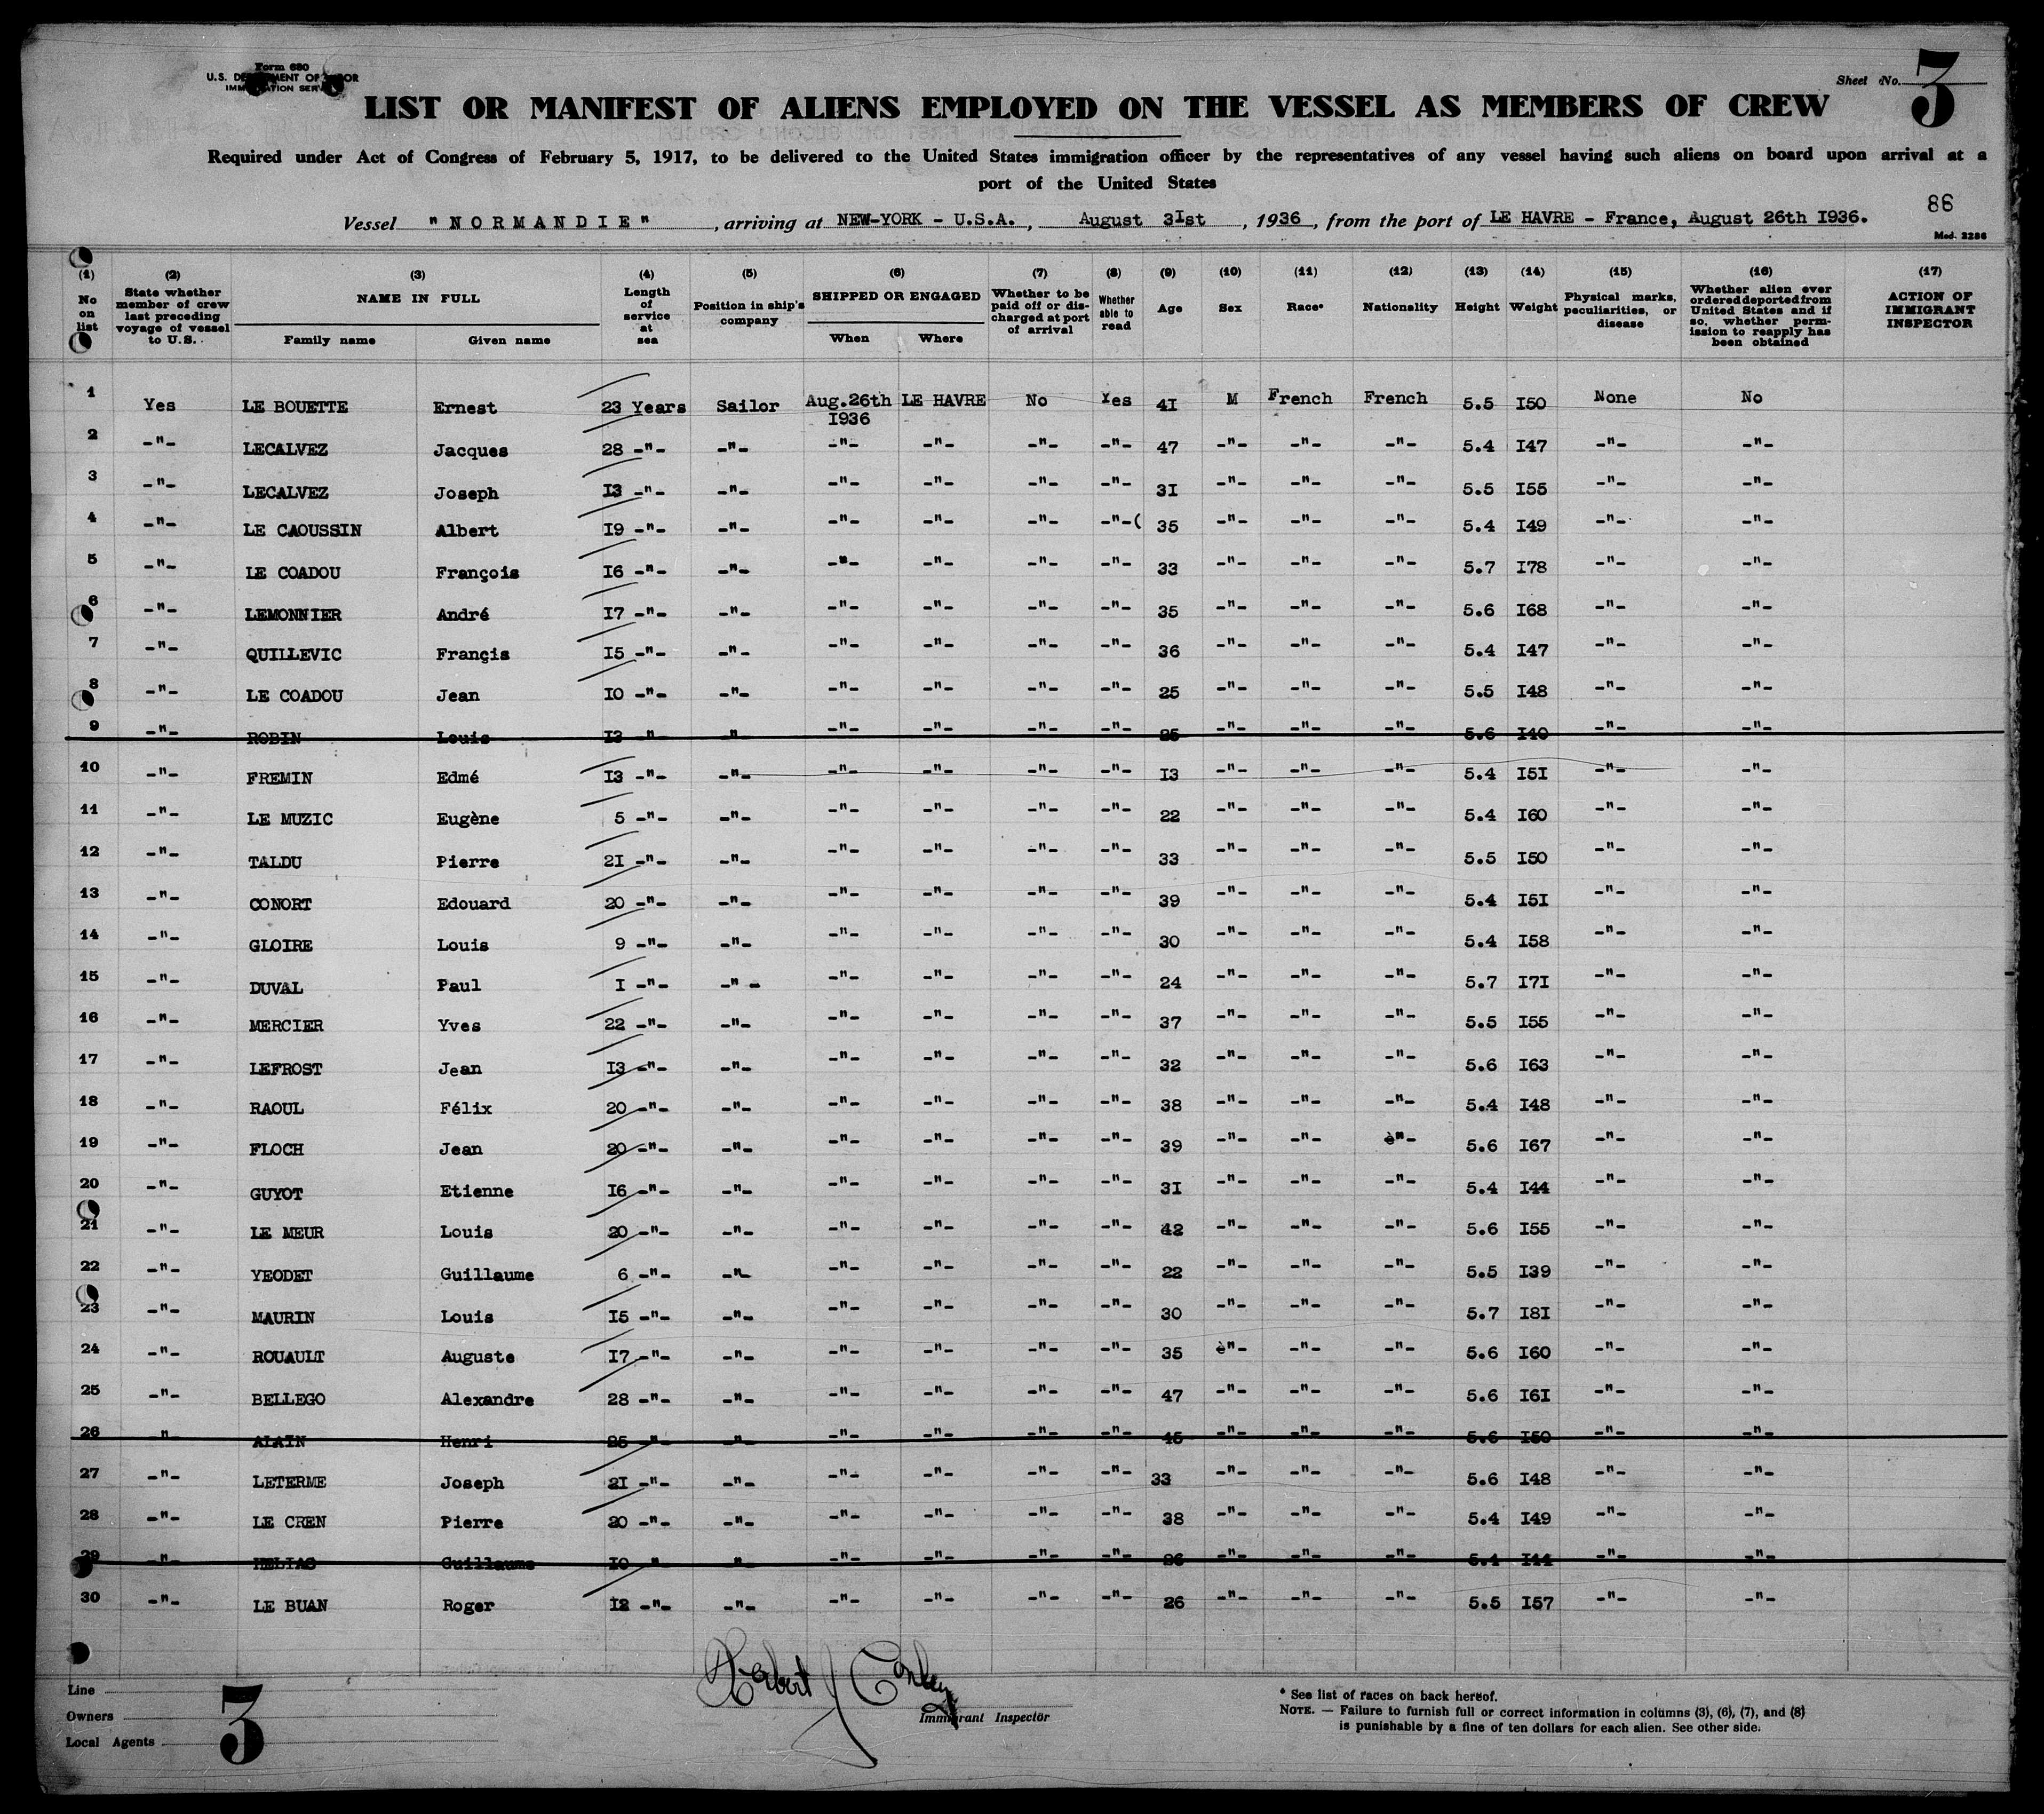 Form 680
U.S. DEPARTMENT OF LABOR
IMMIGRATION SERVICE
Sheet No. 3
LIST OR MANIFEST OF ALIENS EMPLOYED ON THE VESSEL AS MEMBERS OF CREW
Required under Act of Congress of February 5, 1917, to be delivered to the United States immigration officer by the representatives of any vessel having such aliens on board upon arrival at a
port of the United States
86
Vessel "NORMANDIE", arriving at NEW-YORK - U.S.A., August 3Ist, 1936, from the port of LE HAVRE - France, August 26th I936.
Mod. 2286
(1) No on list (2) State whether member of crew last preceding voyage of vessel to U.S. (3) NAME IN FULL Family name Given name (4) Length of service at sea (5) Position in ship's company (6) SHIPPED OR ENGAGED When Where (7) Whether to be paid off or discharged at port of arrival (8) Whether able to read (9) Age (10) Sex (11) Race* (12) Nationality (13) Height (14) Weight (15) Physical marks, peculiarities, or disease (16) Whether alien ever ordered deported from United States and if so, whether permission to reapply has been obtained (17) ACTION OF IMMIGRANT INSPECTOR
1 Yes LE BOUETTE Ernest 23 Years Sailor Aug.26th I936 LE HAVRE No Yes 4I M French French 5.5 I50 None No
2 -"- LECALVEZ Jacques 28 -"- -"- -"- -"- -"- -"- 47 -"- -"- -"- 5.4 I47 -"- -"-
3 -"- LECALVEZ Joseph I3 -"- -"- -"- -"- -"- -"- 3I -"- -"- -"- 5.5 I55 -"- -"-
4 -"- LE CAOUSSIN Albert I9 -"- -"- -"- -"- -"- -"-( 35 -"- -"- -"- 5.4 I49 -"- -"-
5 -"- LE COADOU François I6 -"- -"- -"- -"- -"- -"- 33 -"- -"- -"- 5.7 I78 -"- -"-
6 -"- LEMONNIER André I7 -"- -"- -"- -"- -"- -"- 35 -"- -"- -"- 5.6 I68 -"- -"-
7 -"- QUILLEVIC Françis I5 -"- -"- -"- -"- -"- -"- 36 -"- -"- -"- 5.4 I47 -"- -"-
8 -"- LE COADOU Jean IO -"- -"- -"- -"- -"- -"- 25 -"- -"- -"- 5.5 I48 -"- -"-
9 -"- ROBIN Louis I3 " " -"- -"- -"- -"- 25 -"- -"- -"- 5.6 I40 -"- -"-
10 -"- FREMIN Edmé I3 -"- -"- -"- -"- -"- -"- I3 -"- -"- -"- 5.4 I5I -"- -"-
11 -"- LE MUZIC Eugène 5 -"- -"- -"- -"- -"- -"- 22 -"- -"- -"- 5.4 I60 -"- -"-
12 -"- TALDU Pierre 2I -"- -"- -"- -"- -"- -"- 33 -"- -"- -"- 5.5 I50 -"- -"-
13 -"- CONORT Edouard 20 -"- -"- -"- -"- -"- -"- 39 -"- -"- -"- 5.4 I5I -"- -"-
14 -"- GLOIRE Louis 9 -"- -"- -"- -"- -"- -"- 30 -"- -"- -"- 5.4 I58 -"- -"-
15 -"- DUVAL Paul I -"- -" - -"- -"- -"- -"- 24 -"- -"- -"- 5.7 I7I -"- -"-
16 -"- MERCIER Yves 22 -"- -"- -"- -"- -"- -"- 37 -"- -"- -"- 5.5 I55 -"- -"-
17 -"- LEFROST Jean I3 -"- -"- -"- -"- -"- -"- 32 -"- -"- -"- 5.6 I63 -"- -"-
18 -"- RAOUL Félix 20 -"- -"- -"- -"- -"- -"- 38 -"- -"- -"- 5.4 I48 -"- -"-
19 -"- FLOCH Jean 20 -"- -"- -"- -"- -"- -"- 39 -"- -"- è"- 5.6 I67 -"- -"-
20 -"- GUYOT Etienne I6 -"- -"- -"- -"- -"- -"- 3I -"- -"- -"- 5.4 I44 -"- -"-
21 -"- LE MEUR Louis 20 -"- -"- -"- -"- -"- -"- 42 -"- -"- -"- 5.6 I55 -"- -"-
22 -"- YEODET Guillaume 6 -"- -"- -"- -"- -"- -"- 22 -"- -"- -"- 5.5 I39 -"- -"-
23 -"- MAURIN Louis I5 -"- -"- -"- -"- -"- -"- 30 -"- -"- -"- 5.7 I8I -"- -"-
24 -"- ROUAULT Auguste I7 -"- -"- -"- -"- -"- -"- 35 è"- -"- -"- 5.6 I60 -"- -"-
25 -"- BELLEGO Alexandre 28 -"- -"- -"- -"- -"- -"- 47 -"- -"- -"- 5.6 I6I -"- -"-
26 " ALAIN Henri 25 " " -"- -"- -"- -"- 45 -"- -"- -"- 5.6 I50 -"- -"-
27 -"- LETERME Joseph 2I -"- -"- -"- -"- -"- -"- 33 -"- -"- -"- 5.6 I48 -"- -"-
28 -"- LE CREN Pierre 20 -"- -"- -"- -"- -"- -"- 38 -"- -"- -"- 5.4 I49 -"- -"-
29 " HELIAS Guillaume IO " " -"- -"- -"- -"- 26 -"- -"- -"- 5.4 I44 -"- -"-
30 -"- LE BUAN Roger I2 -"- -"- -"- -"- -"- -"- 26 -"- -"- -"- 5.5 I57 -"- -"-
Line
Owners
Local Agents
3
Herbert J Conley
Immigrant Inspector
* See list of races on back hereof.
NOTE. — Failure to furnish full or correct information in columns (3), (6), (7), and (8)
is punishable by a fine of ten dollars for each alien. See other side.